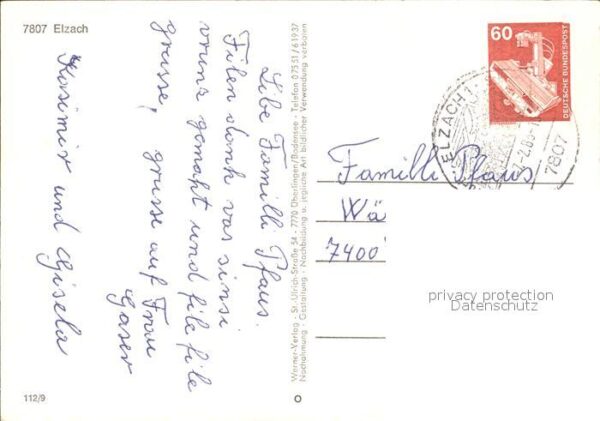 7807 Elzach
Libe Familli Pfaus.
Filen dank vas sinsi
vrunz gemaht und file file
grusse, grusse auf Frau
Gaser
Kasimir und Gisela
112/9
Werner-Verlag - St.-Ulrich-Straße 54 - 7770 Überlingen/Bodensee - Telefon 0 75 51 / 6 19 37
Nachahmung - Gestaltung - Nachbildung u. jegliche Art bildlicher Verwendung verboten
60
DEUTSCHE BUNDESPOST
ELZACH 1
7807
Familli Pfaus
Wä
7400
privacy protection
Datenschutz